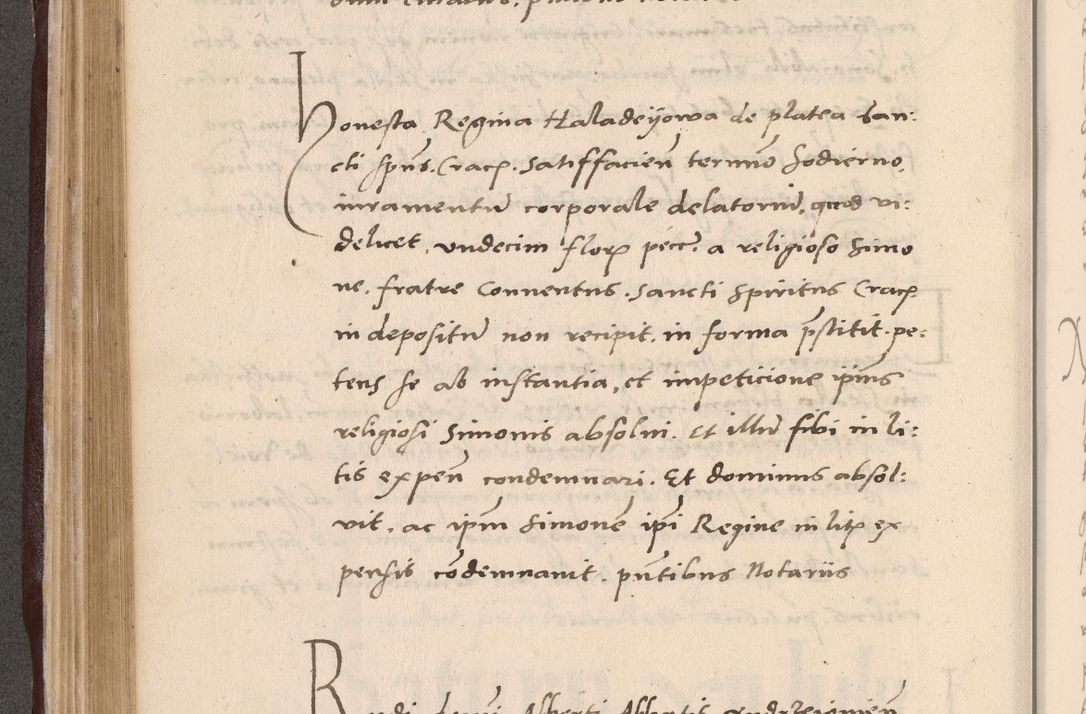 Honesta Regina Haladeyowa de platea San:
cti Spũs. Crac̃. Satisfacieñ termĩo hodierno,
iuramentũ corporale delatorium, quod vi:
delicet, vndecim floꝝ pecc̃. a religioso Simo
ne, fratre Conuentus. Sancti Spiritus Crac̃.
in depositũ non recipit, in forma p̃stitit. pe:
tens se ab instantia, et impeticione ip̃ius
religiosi Simonis absolui. Et illũ sibi in li:
tis expeñ condemnari. Et dominus absol:
vit, ac ip̃m Simonẽ ip̃i Regine in lit̃ ex
pensis cõdemnauit. pñtibus Notariis
Alberti Abbatis